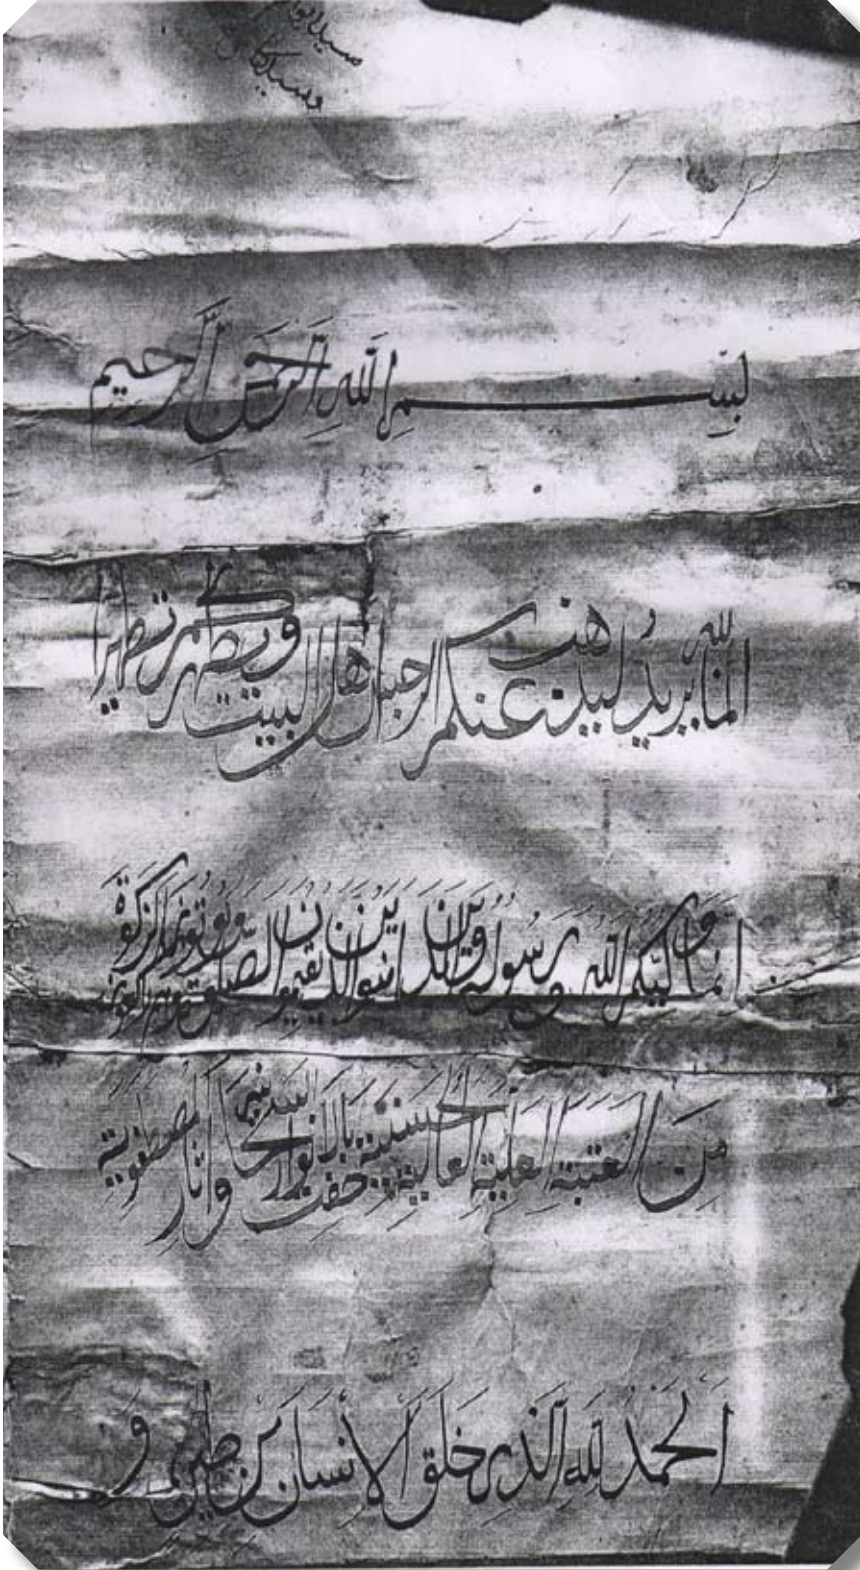 بِسْمِ اللّٰهِ الرَّحْمٰنِ الرَّحِيمِ
انما يريد الله ليذهب عنكم الرجس اهل البيت ويطهركم تطهيرا
انما وليكم الله ورسوله والذين امنوا الذين يقيمون الصلوة ويوتون الزكوة وهم راكعون
مِنَ العتبة العلية العالية الحسنية حفت بالانوار السبحانية واثار مصطفوية
اَلْحَمْدُ لِلّٰهِ الَّذِي خَلَقَ الْاِنْسَانَ مِنْ طِينٍ وَ